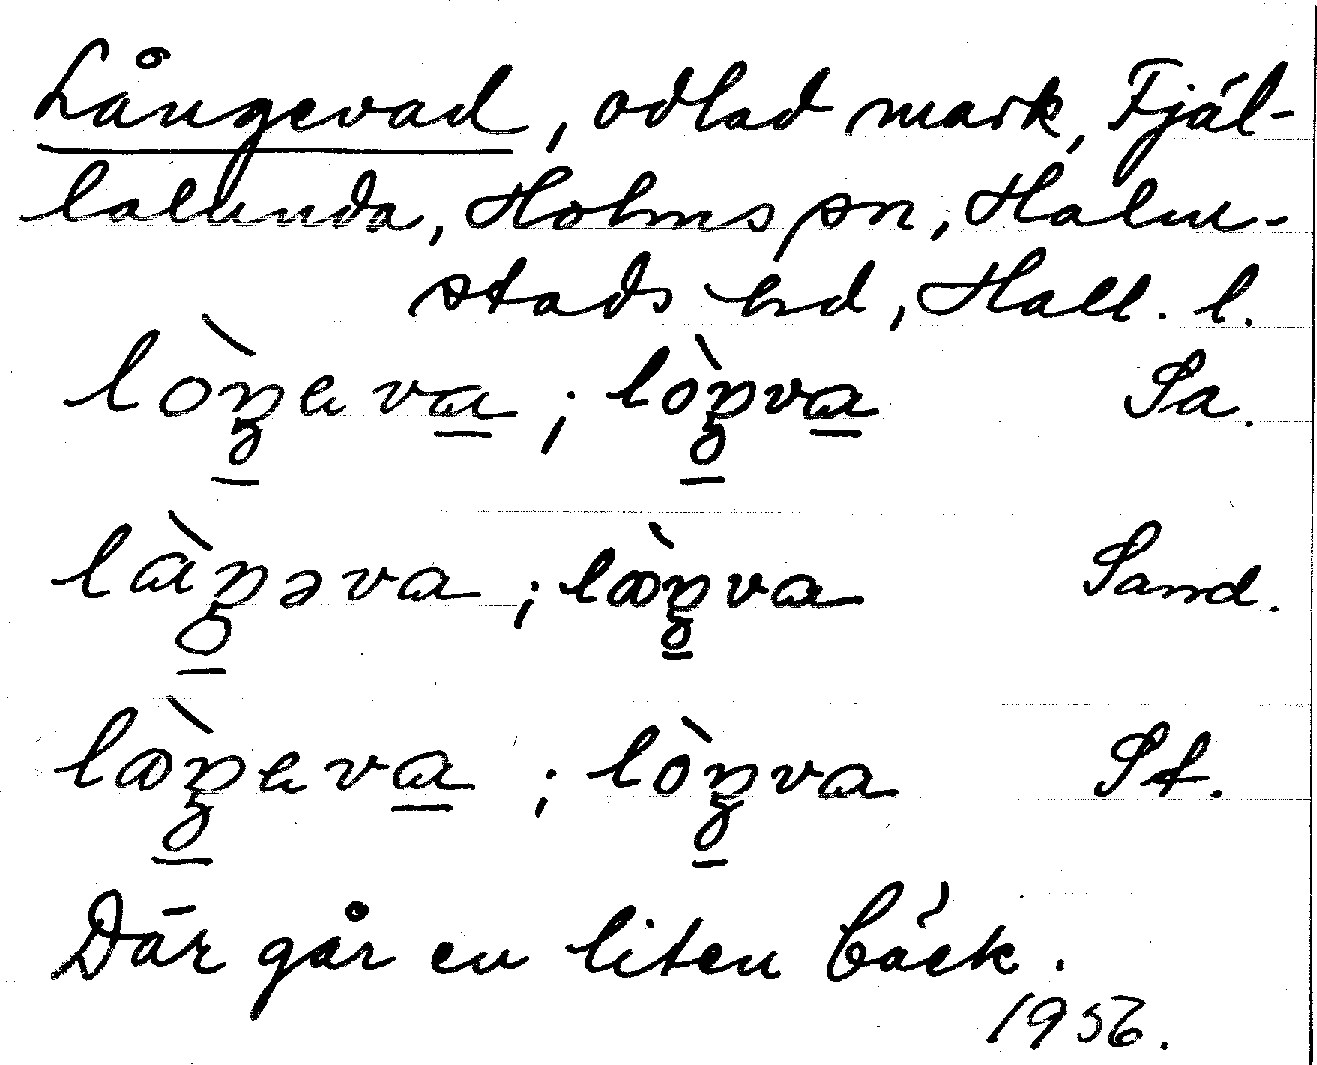 Långevad, odlad mark, Fjäl-
lalunda, Holms sn, Halm-
stads hd, Hall. l.
lòŋeva; lòŋva Sa.
làŋəva; lòŋva Sand.
lòŋeva; lòŋva St.
Där går en liten bäck.
1956.